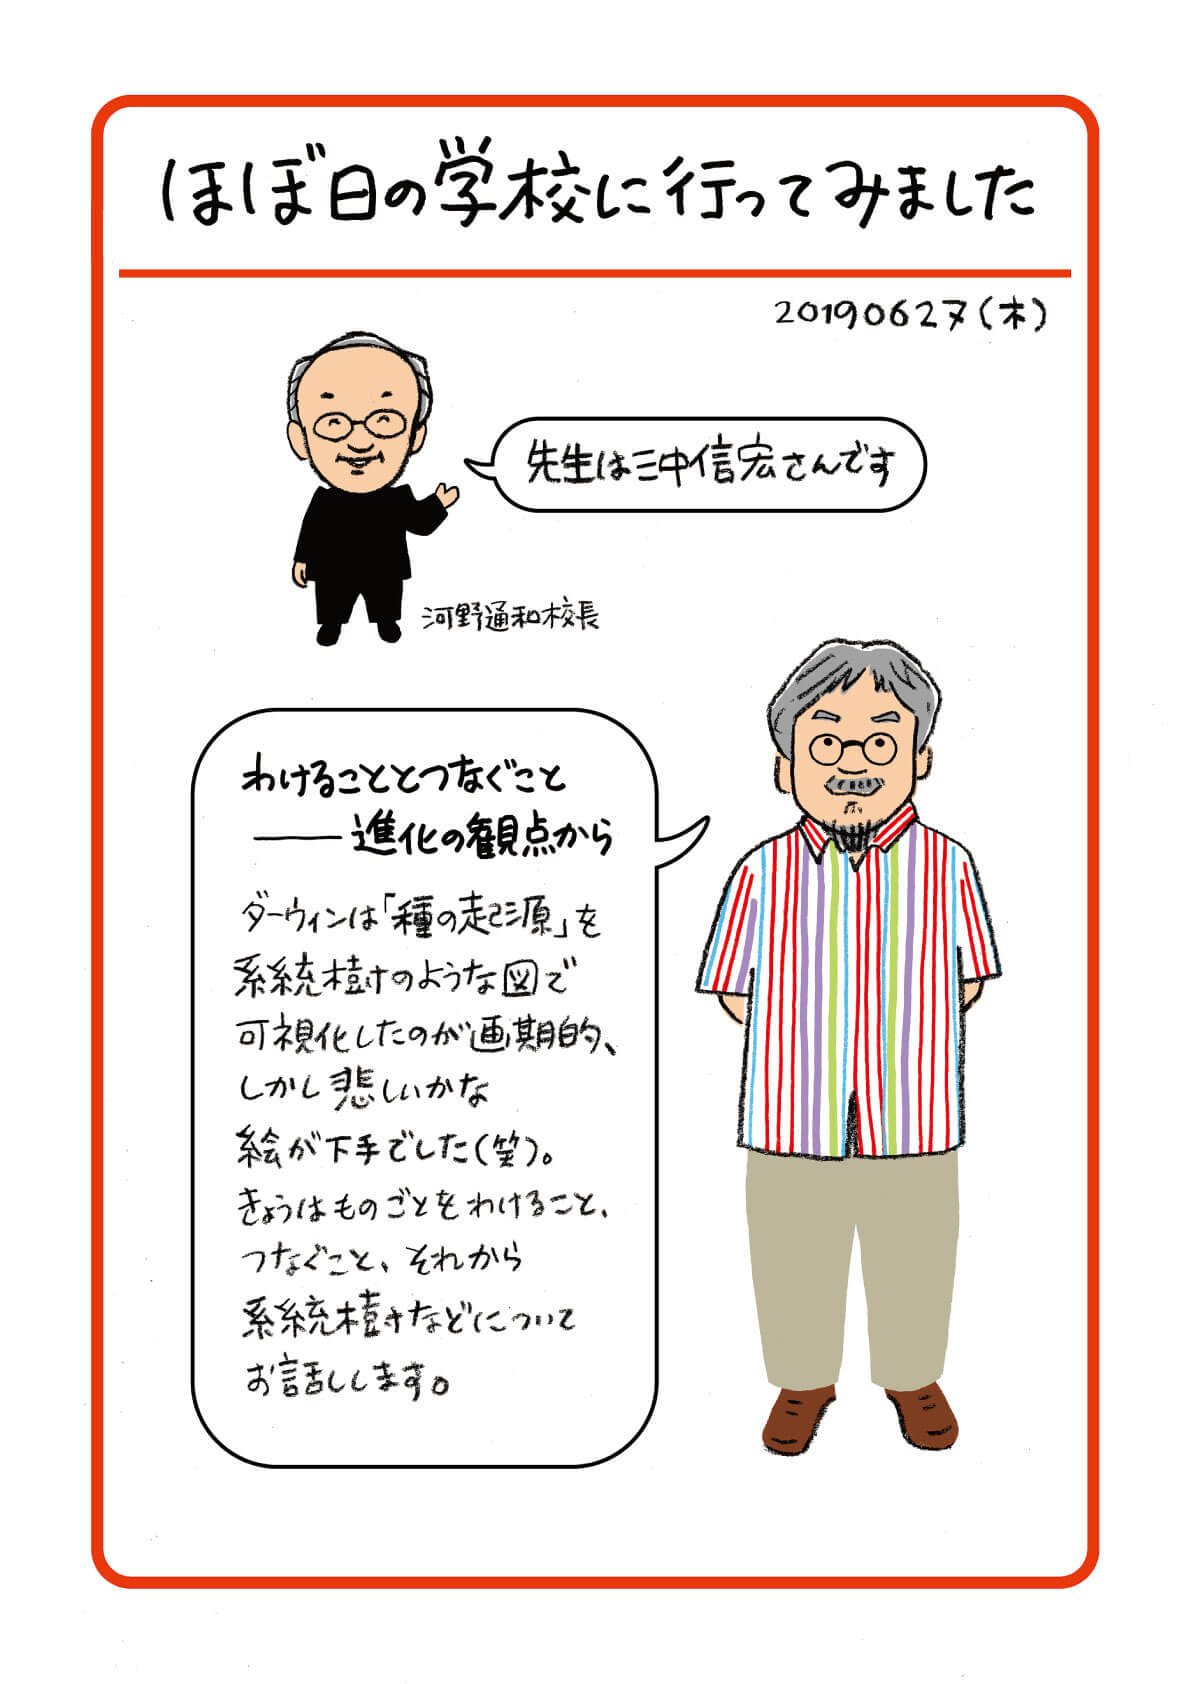 ほぼ日の学校に行ってみました
20190627(木)
先生は三中信宏さんです
河野通和校長
わけることとつなぐこと
――進化の観点から
ダーウィンは「種の起源」を
系統樹のような図で
可視化したのが画期的、
しかし悲しいかな
絵が下手でした(笑)。
きょうはものごとをわけること、
つなぐこと、それから
系統樹などについて
お話しします。